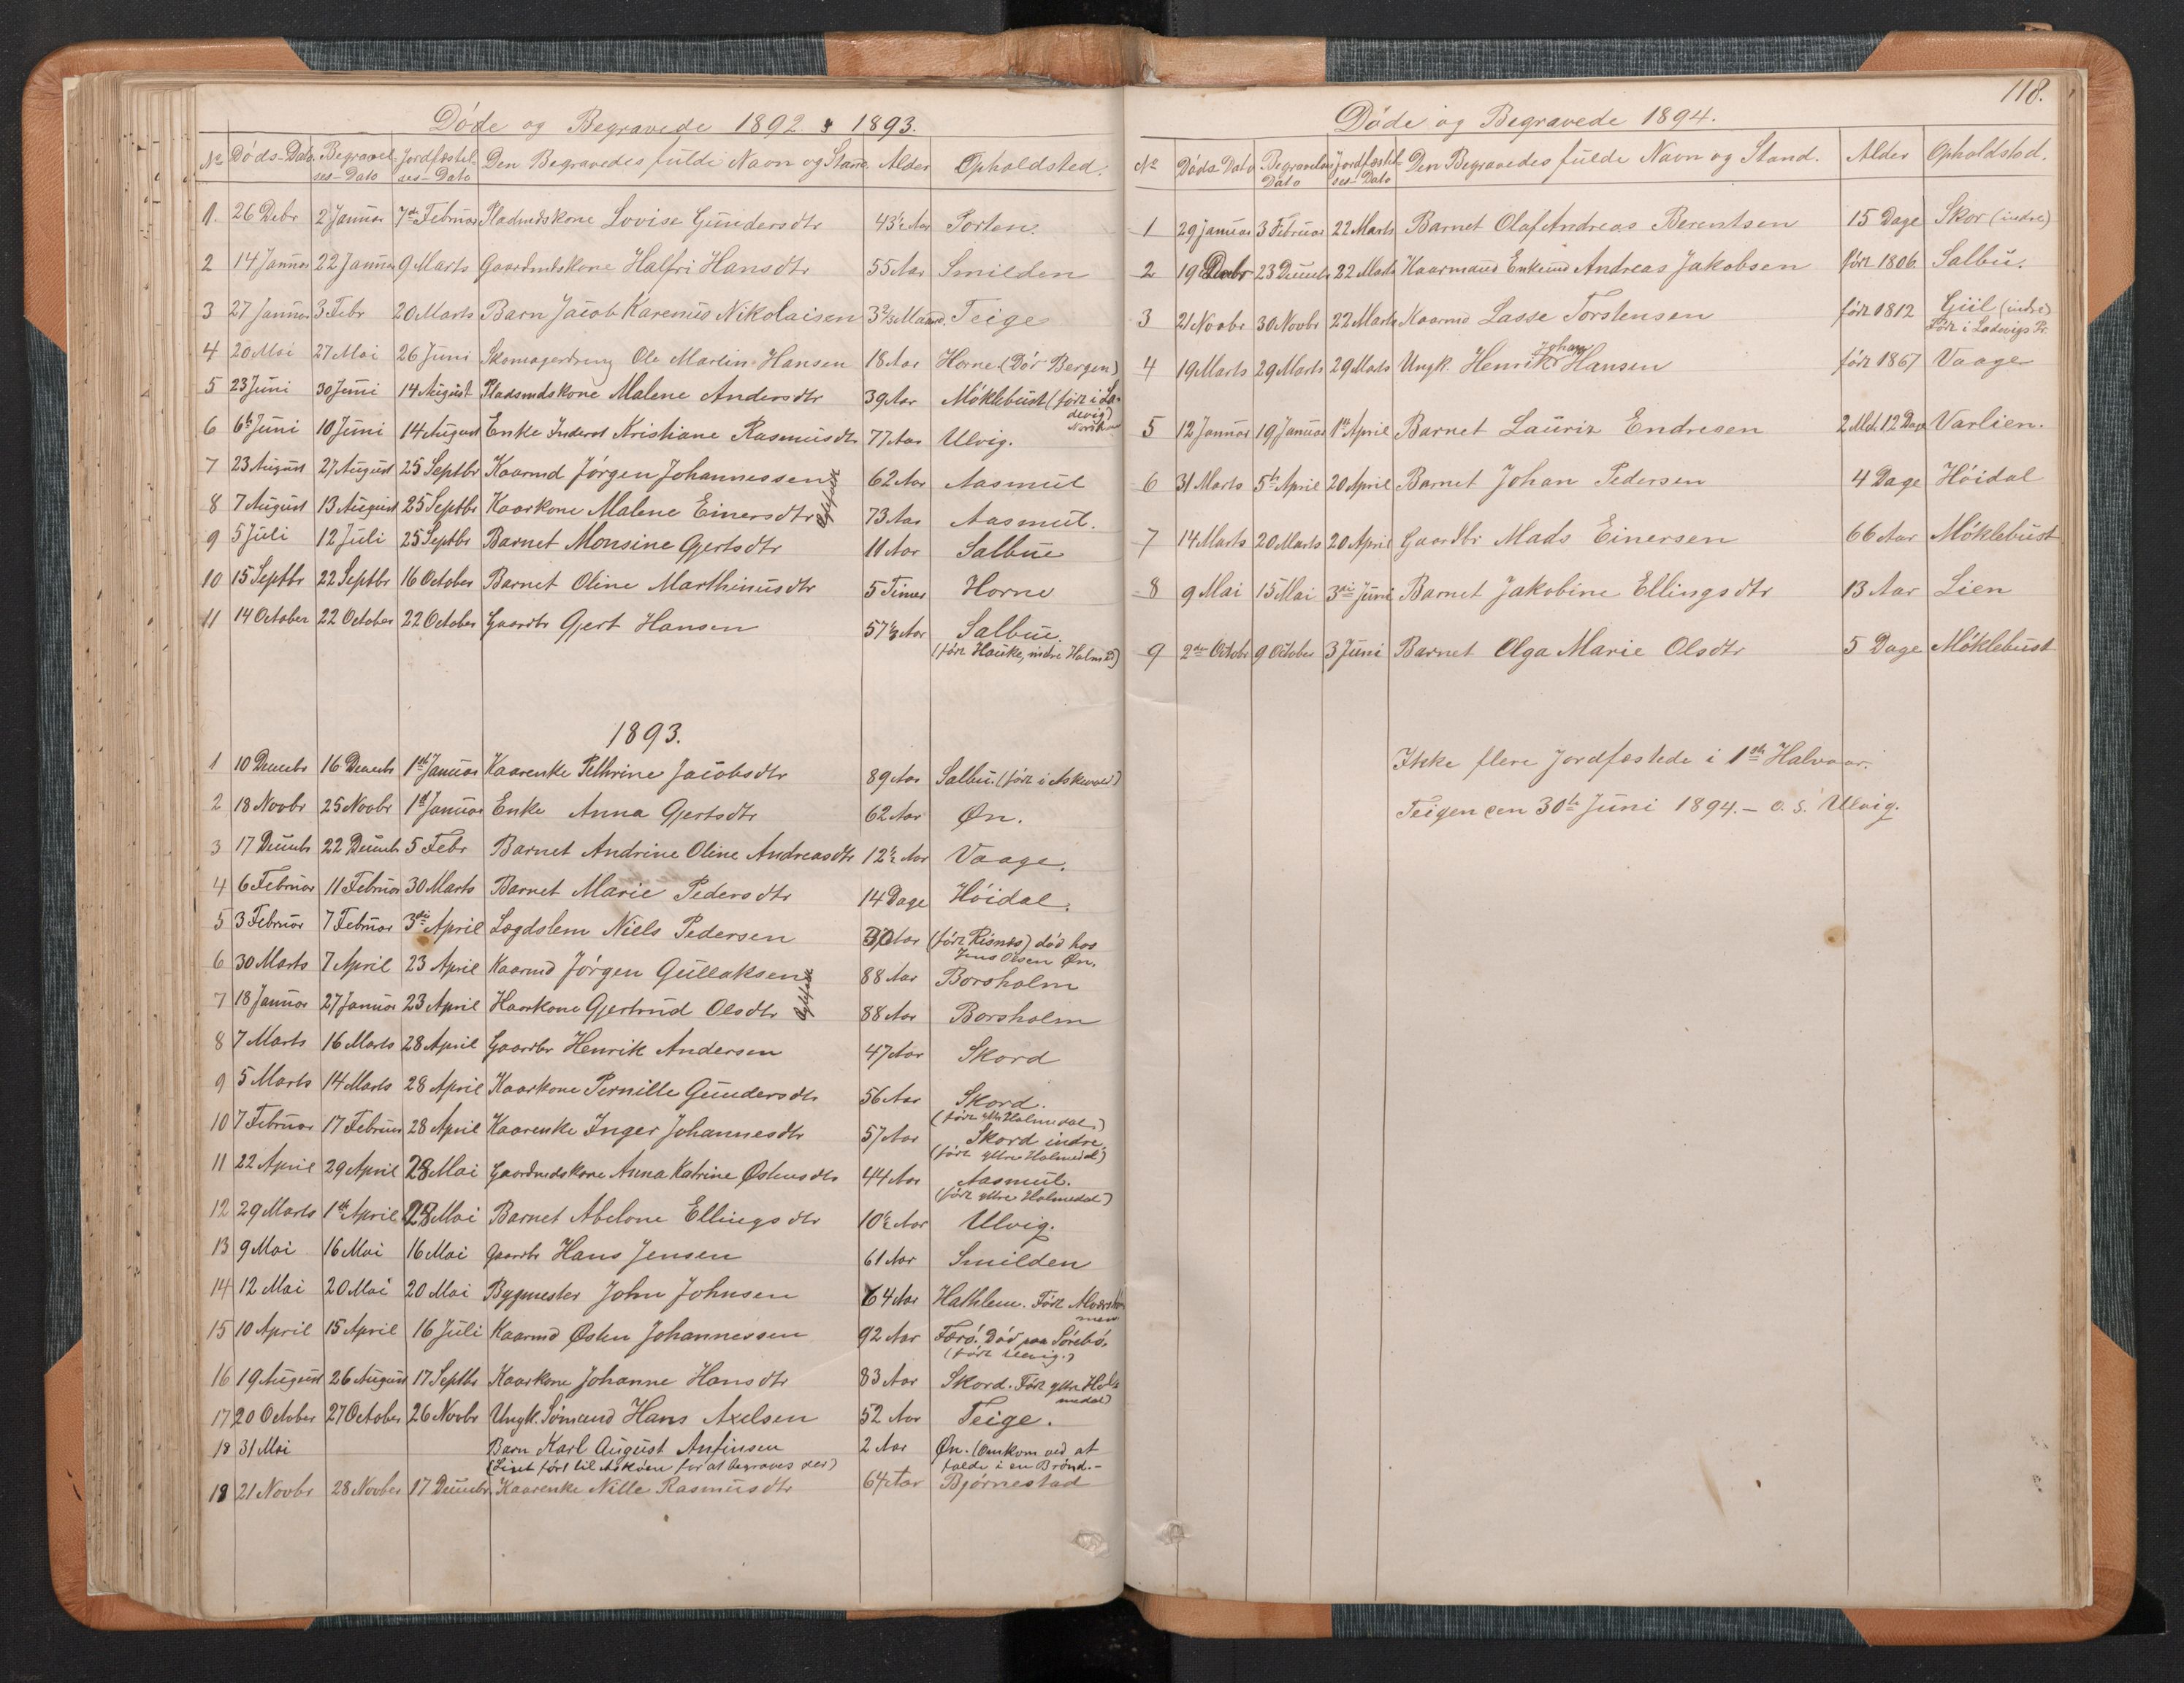 Döde og Begravede 1892 & 1893.
No Döds-Dato. Begravel- Jordfæstel- Den Begravedes fulde Navn og Stand Alder Opholdsted.
ses-Dato ses-Dato
1. 26 Debr 2 Januar 7de Februar Pladmdskone Lovise Gundersdtr 43½ Aar Sorten.
2 14 Januar 22 Januar 9 Marts Gaardmdskone Halfri Hansdtr 55 Aar Smilden
3 27 Januar 3 Febr 20 Marts Barn Jacob Karenus Nikolaisen 3⅔ Maaned. Teige
4 20 Mai 27 Mai 26 Juni Skomagerdreng Ole Martin Hansen 18 Aar Horne (Dör Bergen)
5 23 Juni 30 Juni 14 August Pladsmdskone Malene Andersdtr 39 Aar Möklebust (föd i La-
devig)
6 6te Juni 10 Juni 14 August Enke Inderst Kristiane Rasmusdtr 77 Aar Ulvig.
7 23 August 27 August 25 Septbr Kaarmd Jörgen Johannessen 62 Aar Aasmul
8 7 August 13 August 25 Septbr Kaarkone Malene Einersdtr Egtfolk 73 Aar Aasmul.
9 5 Juli 12 Juli 25 Septbr Barnet Monsine Gjertsdtr 11 Aar Salbue
10 15 Septbr 22 Septbr 16 October Barnet Oline Marthinusdtr 5 Timer Horne
11 14 October 22 October 22 October Gaardbr Gjert Hansen 57½ Aar Salbue.
(föd Hauke, indre Holmd)
1893.
1 10 Decembr 16 Decembr 1ste Januar Kaarenke Pethrine Jacobsdtr 89 Aar Salbu. (föd i Askevold)
2 18 Novbr 25 Novbr 1ste Januar Enke Anna Gjertsdtr 62 Aar Øn.
3 17 Decembr 22 Decembr 5 Febr Barnet Andrine Oline Andreasdtr 12½ Aar Vaage.
4 6 Februar 11 Februar 30 Marts Barnet Marie Pedersdtr 14 Dage Höidal.
5 3 Februar 7 Februar 3die April Lægdslem Niels Pedersen Aar (föd Risnæs) död hos
Jens Olsen Øn.
6 30 Marts 7 April 23 April Kaarmd Jörgen Gullaksen 88 Aar Borsholm
7 18 Januar 27 Januar 23 April Kaarkone Gjertrud Olsdtr Egtfolk 88 Aar Borsholm
8 7 Marts 16 Marts 28 April Gaardbr Henrik Andersen 47 Aar Skord
9 5 Marts 14 Marts 28 April Kaarkone Pernille Gundersdtr 56 Aar Skord.
(föd ytre Holmedal)
10 7 Februar 17 Februar 28 April Kaarenke Inger Johannesdtr 57 Aar Skord indre.
(föd ytre Holmedal)
11 22 April 29 April 28 Mai Gaardmdskone Anna Katrine Østensdtr 44 Aar Aasmul.
(föd ytre Holmedal)
12 29 Marts 1ste April 28 Mai Barnet Abelone Ellingsdtr 10½ Aar Ulvig.
13 9 Mai 16 Mai 16 Mai Gaardbr Hans Jensen 61 Aar Smilden
14 12 Mai 20 Mai 20 Mai Bygmester John Johnsen 64 Aar Hathlem. Föd
15 10 April 15 April 16 Juli Kaarmd Østen Johannessen 92 Aar Færö. Död paa Sörebö.
(föd Ulvig.)
16 19 August 26 August 17 Septbr Kaarkone Johanne Hansdtr 83 Aar Skord. Föd ytre Hol-
medal)
17 20 October 27 October 26 Novbr Ungk. Sömand Hans Axelsen 52 Aar Teige.
18 31 Mai Barn Karl August Anfinsen 2 Aar Øn. (Omkom ved at
(Liget fört til Asköen for at begraves der) falde i en Brönd.-
19 21 Novbr 28 Novber 17 Decembr Kaarenke Nille Rasmusdtr 64 Aar Björnestad
118.
Döde og Begravede 1894.
No Döds Dato Begravelses Jordfæstel- Den Begravedes fulde Navn og Stand. Alder Opholdsted.
Dato ses-Dato
1 29 Januar 3 Februar 22 Marts Barnet Olaf Andreas Berentsen 15 Dage Skor (indre)
2 19 Debr 23 Decembr 22 Marts Kaarmand Enkemd Andreas Jakobsen föd 1806. Salbu.
3 21 Novbr 30 Novbr 22 Marts Kaarmd Lasse Torstensen föd 1812 Giil (indre)
Föd i Ladevigs Pr.
Johan
4 19 Marts 29 Marts 29 Marts Ungk. Henrik Hansen föd 1867 Vaage
5 12 Januar 19 Januar 1ste April Barnet Lauriz Endresen 2 Md. 12 Dage Varlien.
6 31 Marts 5te April 20 April Barnet Johan Pedersen 4 Dage Höidal
7 14 Marts 20 Marts 20 April Gaardbr Mads Einersen 66 Aar Möklebust
8 9 Mai 15 Mai 3die Juni Barnet Jakobine Ellingsdtr 13 Aar Lien
9 2den Octobr 9 October 3 Juni Barnet Olga Marie Olsdtr 5 Dage Möklebust
Ikke flere Jordfæstede i 1ste Halvaar.
Teigen den 30te Juni 1894.- O. S. Ulvig.